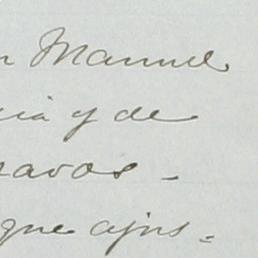 n Manuel
cia y de
ravos -
que ajus-